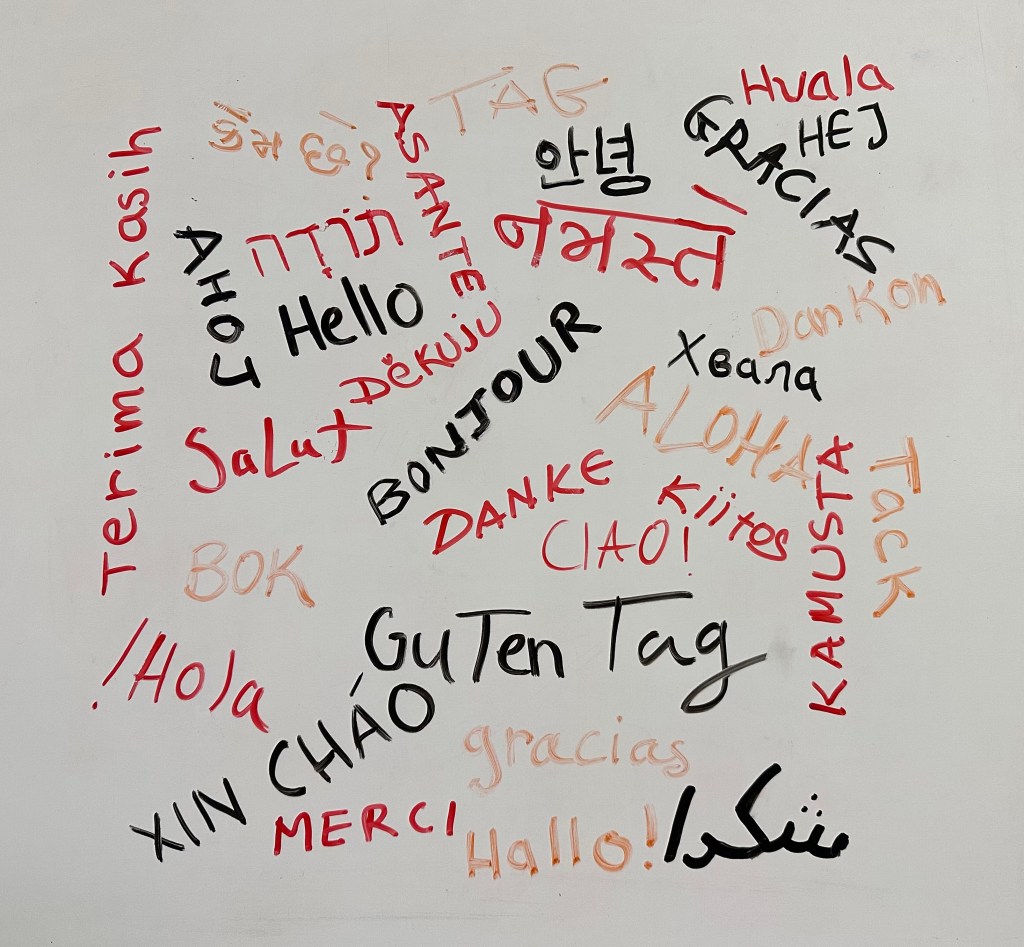 TAG
Hvala
કેમ છો?
ASANTE
GRACIAS
HEJ
Terima Kasih
안녕
תודה
नमस्ते
AHOJ
Hello
Dankon
Děkuju
BONJOUR
Хвала
ALOHA
Salut
DANKE
Kiitos
KAMUSTA
Tack
CIAO!
BOK
GuTen Tag
!Hola
XIN CHÁO
gracias
شكرا
MERCI
Hallo!